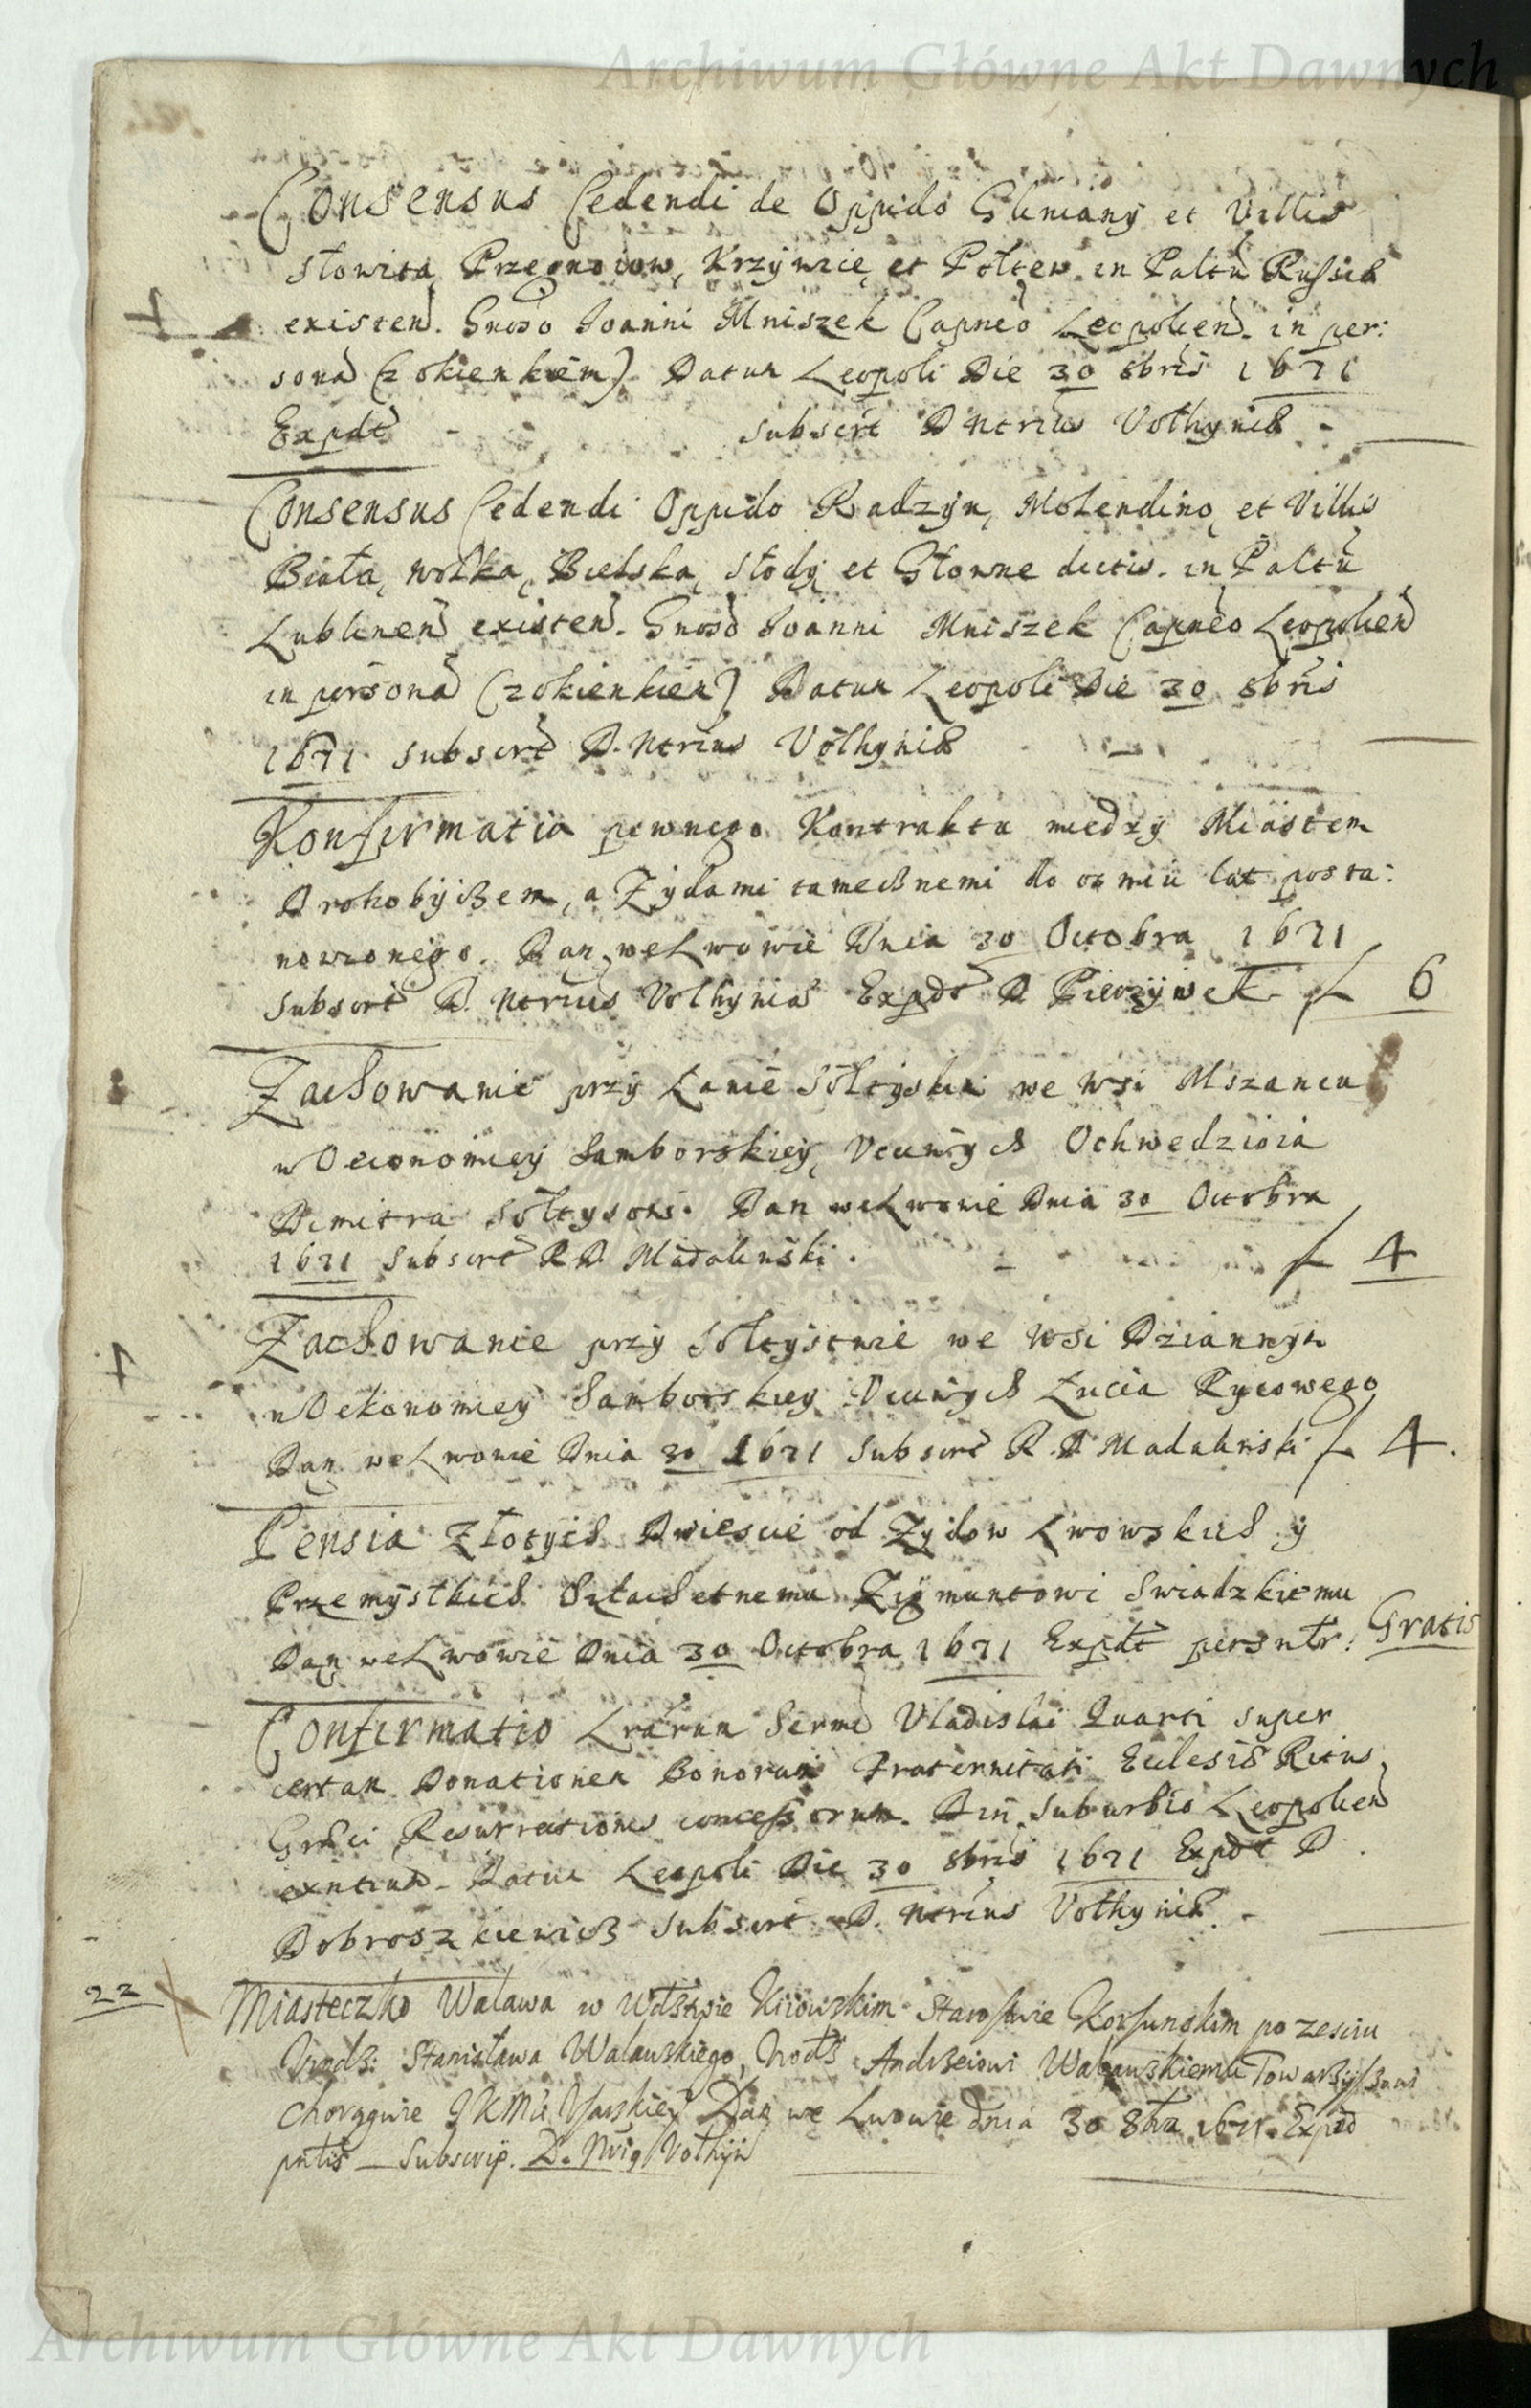 Archiwum Główne Akt Dawnych
Consensus Cedendi de Oppido Gliniany et Villis
Słowita, Przegnoiow, Krzywice, et Połtew. in Paltu Russiæ
existen. Gnoso Joanni Mniszek Capneo Leopolien. in per:
sona (z okienkiem) Datum Leopoli Die 30 8bris 1671
Expdt - subscrt D Ntrius Volhyniæ -
Consensus Cedendi Oppido Radzyn, Molendino, et Villis
Biała, Wolka, Bielska, Słody, et Głowne dictis. in Paltu
Lublinen existen. Gnoso Joanni Mniszek Capneo Leopolien
in persona (z okienkiem) Datum Leopoli Die 30 8bris
1671 subscrt D. Ntrius Volhyniæ
Konfirmatia pewnego Kontraktu miedzy Miastem
Drohobyczem, a Zydami tamecznemi do osmiu lat posta:
nowionego. Dan we Lwowie Dnia 30 Octobra 1671
Subscrt D. Ntrius Volhyniæ Expdt D f 6
Zachowanie przy Łanie Sołtyskim we Wsi Mszancu
w Oeconomiey Samborskiey, Vcciwych
Dimitra Sołtysow. Dan we Lwowie Dnia 30 Octobra
1671 Subscrt R D. Madalinski. f 4
Zachowanie przy Sołtystwie we Wsi
w Oekonomiey Samborskiey Vcciwych Łucia
Dan we Lwowie Dnia 30 1671 Subscrt R. D Madalinski f 4.
Pensia Złotych Dwiescie od Zydow Lwowskich y
Przemyslkich Szlachetnemu Zigmuntowi Swiadzkiemu
Dan we Lwowie Dnia 30 Octobra 1671 Expdt Gratis
Confirmatio Lrarum Sermi Vladislai Quarti super
certam Donationem Bonorum Fraternitati Ecclesiæ Ritus
Græci Resurrectionis concessorum. Suburbio Leopolien
Datum Leopoli Die 30 8bris 1671 Expdt D.
Dobroszkiewicz Subscrt D. Ntrius Volhyniæ -
22 Miasteczko Walawa w Wdztwie Kiiowskim Starostwie Korsunskim po zesciu
Stanisława Walawskiego, Andrzeiowi Walawskiemu Towarzyszowi
Chorągwie JKMci Dan we Lwowie dnia 30 1671. Exped
Subscrip. D.
Archiwum Główne Akt Dawnych